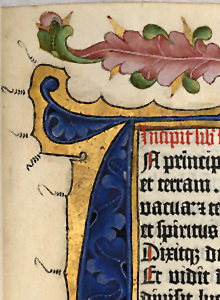 Incipit lib
N principi
et terram
vacua: et te
et spiritus
Dixitq; d
Et vidit
divisit lu